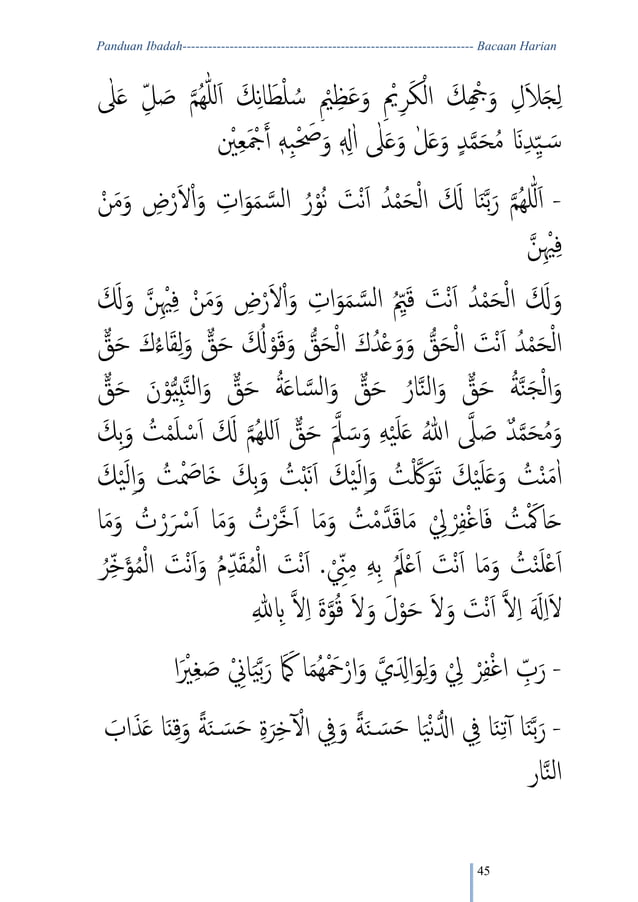 Panduan Ibadah------------------------------------------------------------------- Bacaan Harian
لِجَلاَلِ وَجْهِكَ الْكَرِيْمِ وَعَظِيْمِ سُلْطَانِكَ اَللّٰهُمَّ صَلِّ عَلٰى
سَيِّدِنَا مُحَمَّدٍ وَعَلٰى وَعَلٰى اٰلِهٖ وَصَحْبِهٖ أَجْمَعِيْنَ
- اَللّٰهُمَّ رَبَّنَا لَكَ الْحَمْدُ اَنْتَ نُوْرُ السَّمَوَاتِ وَاْلاَرْضِ وَمَنْ
فِيْهِنَّ
وَلَكَ الْحَمْدُ اَنْتَ قَيِّمُ السَّمَوَاتِ وَاْلاَرْضِ وَمَنْ فِيْهِنَّ وَلَكَ
الْحَمْدُ اَنْتَ الْحَقُّ وَوَعْدُكَ الْحَقُّ وَقَوْلُكَ حَقٌّ وَلِقَاءُكَ حَقٌّ
وَالْجَنَّةُ حَقٌّ وَالنَّارُ حَقٌّ وَالسَّاعَةُ حَقٌّ وَالنَّبِيُّوْنَ حَقٌّ
وَمُحَمَّدٌ صَلَّى اللهُ عَلَيْهِ وَسَلَّمَ حَقٌّ اَللهُمَّ لَكَ اَسْلَمْتُ وَبِكَ
اٰمَنْتُ وَعَلَيْكَ تَوَكَّلْتُ وَاِلَيْكَ اَنَبْتُ وَبِكَ خَاصَمْتُ وَاِلَيْكَ
حَاكَمْتُ فَاغْفِرْلِيْ مَاقَدَّمْتُ وَمَا اَخَّرْتُ وَمَا اَسْرَرْتُ وَمَا
اَعْلَنْتُ وَمَا اَنْتَ اَعْلَمُ بِهِ مِنِّيْ. اَنْتَ الْمُقَدِّمُ وَاَنْتَ الْمُؤَخِّرُ
لاَاِلَهَ اِلاَّ اَنْتَ وَلاَ حَوْلَ وَلاَ قُوَّةَ اِلاَّ بِاللهِ
- رَبِّ اغْفِرْ لِيْ وَلِوَالِدَيَّ وَارْحَمْهُمَا كَمَا رَبَّيَانِيْ صَغِيْرًا
- رَبَّنَا آتِنَا فِي الدُّنْيَا حَسَنَةً وَفِي الْآخِرَةِ حَسَنَةً وَقِنَا عَذَابَ
النَّار
45